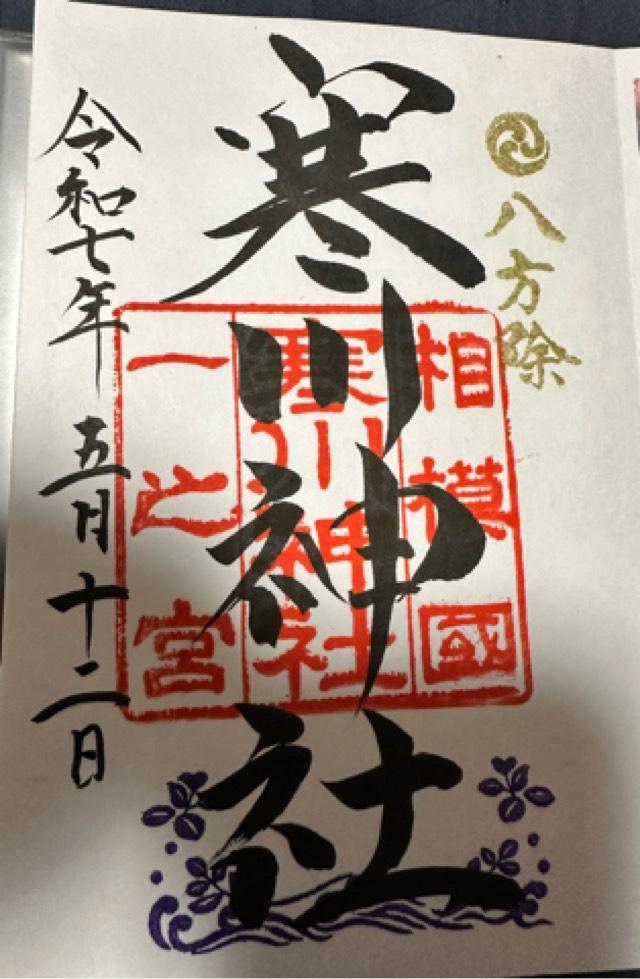 八方除
寒川神社
相模國
寒川神社
一之宮
令和七年 五月十二日